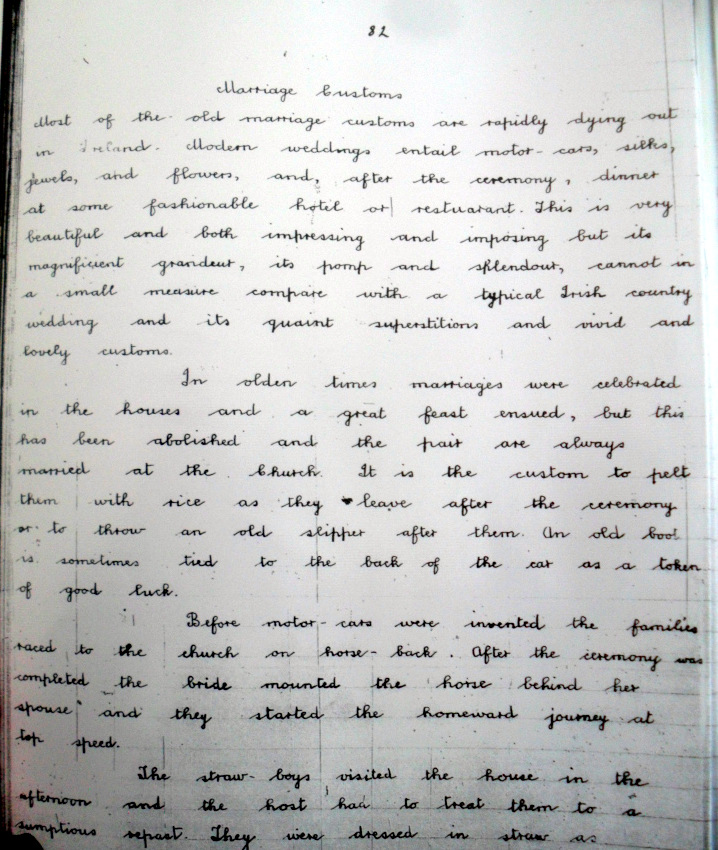 82
Marriage Customs
Most of the old marriage customs are rapidly dying out
in Ireland. Modern weddings entail motor-cars, silks,
jewels, and flowers, and, after the ceremony, dinner
at some fashionable hotel or restuarant. This is very
beautiful and both impressing and imposing but its
magnificient grandeur, its pomp and splendour, cannot in
a small measure compare with a typical Irish country
wedding and its quaint superstitions and vivid and
lovely customs.
In olden times marriages were celebrated
in the houses and a great feast ensued, but this
has been abolished and the pair are always
married at the Church. It is the custom to pelt
them with rice as they leave after the ceremony
or to throw an old slipper after them. An old boot
is sometimes tied to the back of the car as a token
of good luck.
Before motor-cars were invented the families
raced to the church on horse-back. After the ceremony was
completed the bride mounted the horse behind her
spouse and they started the homeward journey at
top speed.
The straw-boys visited the house in the
afternoon and the host had to treat them to a
sumptious repast. They were dressed in straw as